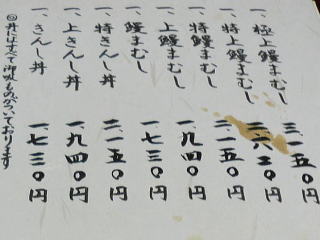 一、極上鰻まむし 三、一五〇円
一、特上鰻まむし 二、六三〇円
一、特鰻まむし 二、一五〇円
一、上鰻まむし 一、九四〇円
一、鰻まむし 一、七三〇円
一、特きんし丼 二、一五〇円
一、上きんし丼 一、九四〇円
一、きんし丼 一、七三〇円
◎丼にはすべて御吸ものがついております